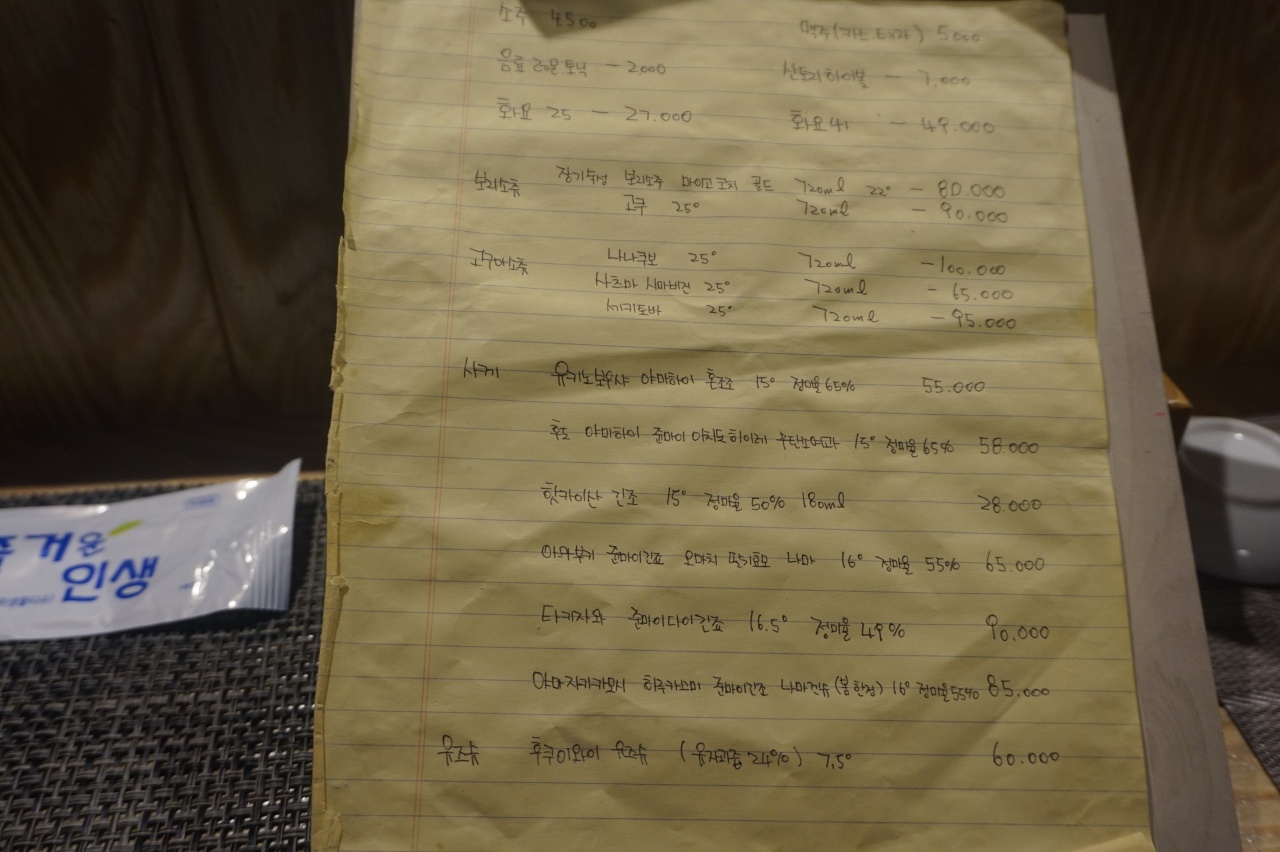 소주 4500 맥주(카스 테라) 5000
음료 레몬.토닉 - 2,000 산토리하이볼 - 7,000
화요 25 - 27.000 화요41 - 49.000
보리소츄 장기숙성 보리소주 마이고코치 골드 720ml 22° - 80.000
고쿠 25° 720ml - 90.000
고구마소츄 나나쿠보 25° 720ml - 100.000
사츠마 시마비진 25° 720ml - 65.000
세키토바 25° 720ml - 95.000
사케 유키노보우샤 야마하이 혼죠조 15° 정미율65% 55.000
후도 야마하이 준마이 이치도히이레 무탄소여과 15° 정미율65% 58.000
핫카이산 긴조 15° 정미율 50% 180ml 28.000
아와부키 준마이긴죠 오마치 딸기효모 나마 16° 정미율 55% 65.000
타키자와 준마이다이긴죠 16.5° 정미율 49% 90.000
야마자키카모시 하루카스미 준마이긴조 나마겐슈(봄한정) 16° 정미율55% 85.000
유즈슈 후쿠이와이 유즈슈 (유자과즙24%) 7.5° 60.000
즐거운
인생